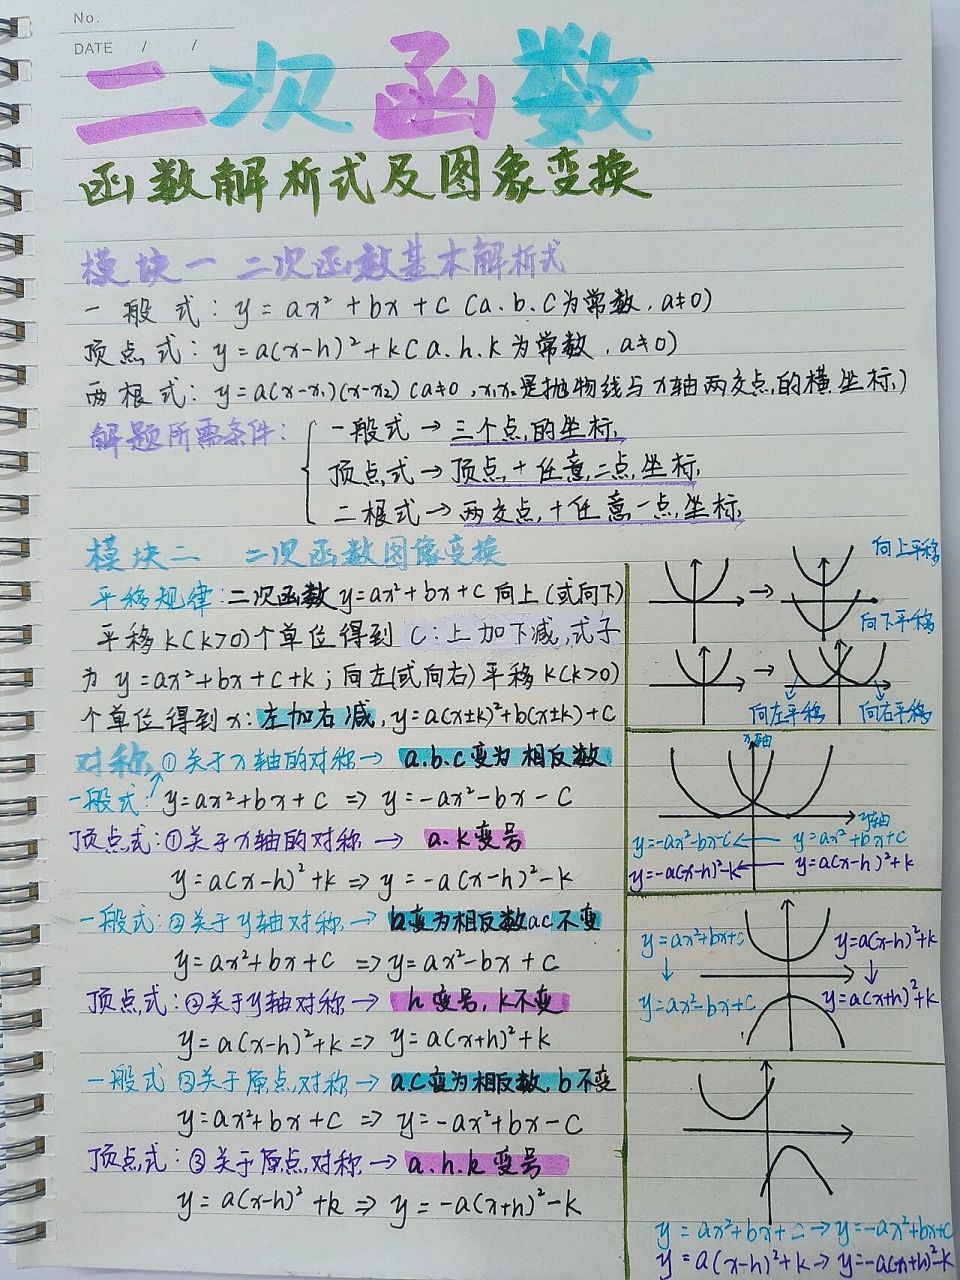 No.
DATE / /
二次函数
函数解析式及图象变换
模块一 二次函数基本解析式
一般式: y=ax²+bx+c (a.b.c为常数, a≠0)
顶点式: y=a(x-h)²+k (a.h.k为常数, a≠0)
两根式: y=a(x-x₁)(x-x₂) (a≠0, x₁x₂是抛物线与x轴两交点的横坐标)
解题所需条件:
一般式→三个点的坐标
顶点式→顶点+任意二点坐标
二根式→两交点+任意一点坐标
模块二 二次函数图像变换
平移规律: 二次函数y=ax²+bx+c向上(或向下)
平移k(k>0)个单位得到 c:上加下减,式子
为 y=ax²+bx+c+k; 向左(或向右)平移k(k>0)
个单位得到x: 左加右减, y=a(x±k)²+b(x±k)+c
对称 ①关于x轴的对称→ a.b.c变为相反数
一般式: y=ax²+bx+c ⇒ y=-ax²-bx-c
顶点式: ①关于x轴的对称 → a.k变号
y=a(x-h)²+k ⇒ y=-a(x-h)²-k
一般式: ②关于y轴对称→ b变为相反数ac不变
y=ax²+bx+c ⇒ y=ax²-bx+c
顶点式: ②关于y轴对称→ h变号, k不变
y=a(x-h)²+k ⇒ y=a(x+h)²+k
一般式 ③关于原点对称→ a.c变为相反数, b不变
y=ax²+bx+c ⇒ y=-ax²+bx-c
顶点式: ③关于原点对称→ a.h.k变号
y=a(x-h)²+k ⇒ y=-a(x+h)²-k
向上平移
向下平移
向左平移 向右平移
x轴
y轴
y=-ax²-bx-c ← y=ax²+bx+c
y=-a(x-h)²-k ← y=a(x-h)²+k
y=ax²+bx+c y=a(x-h)²+k
↓ ↓
y=ax²-bx+c y=a(x+h)²+k
y=ax²+bx+c→y=-ax²+bx-c
y=a(x-h)²+k→y=-a(x+h)²-k